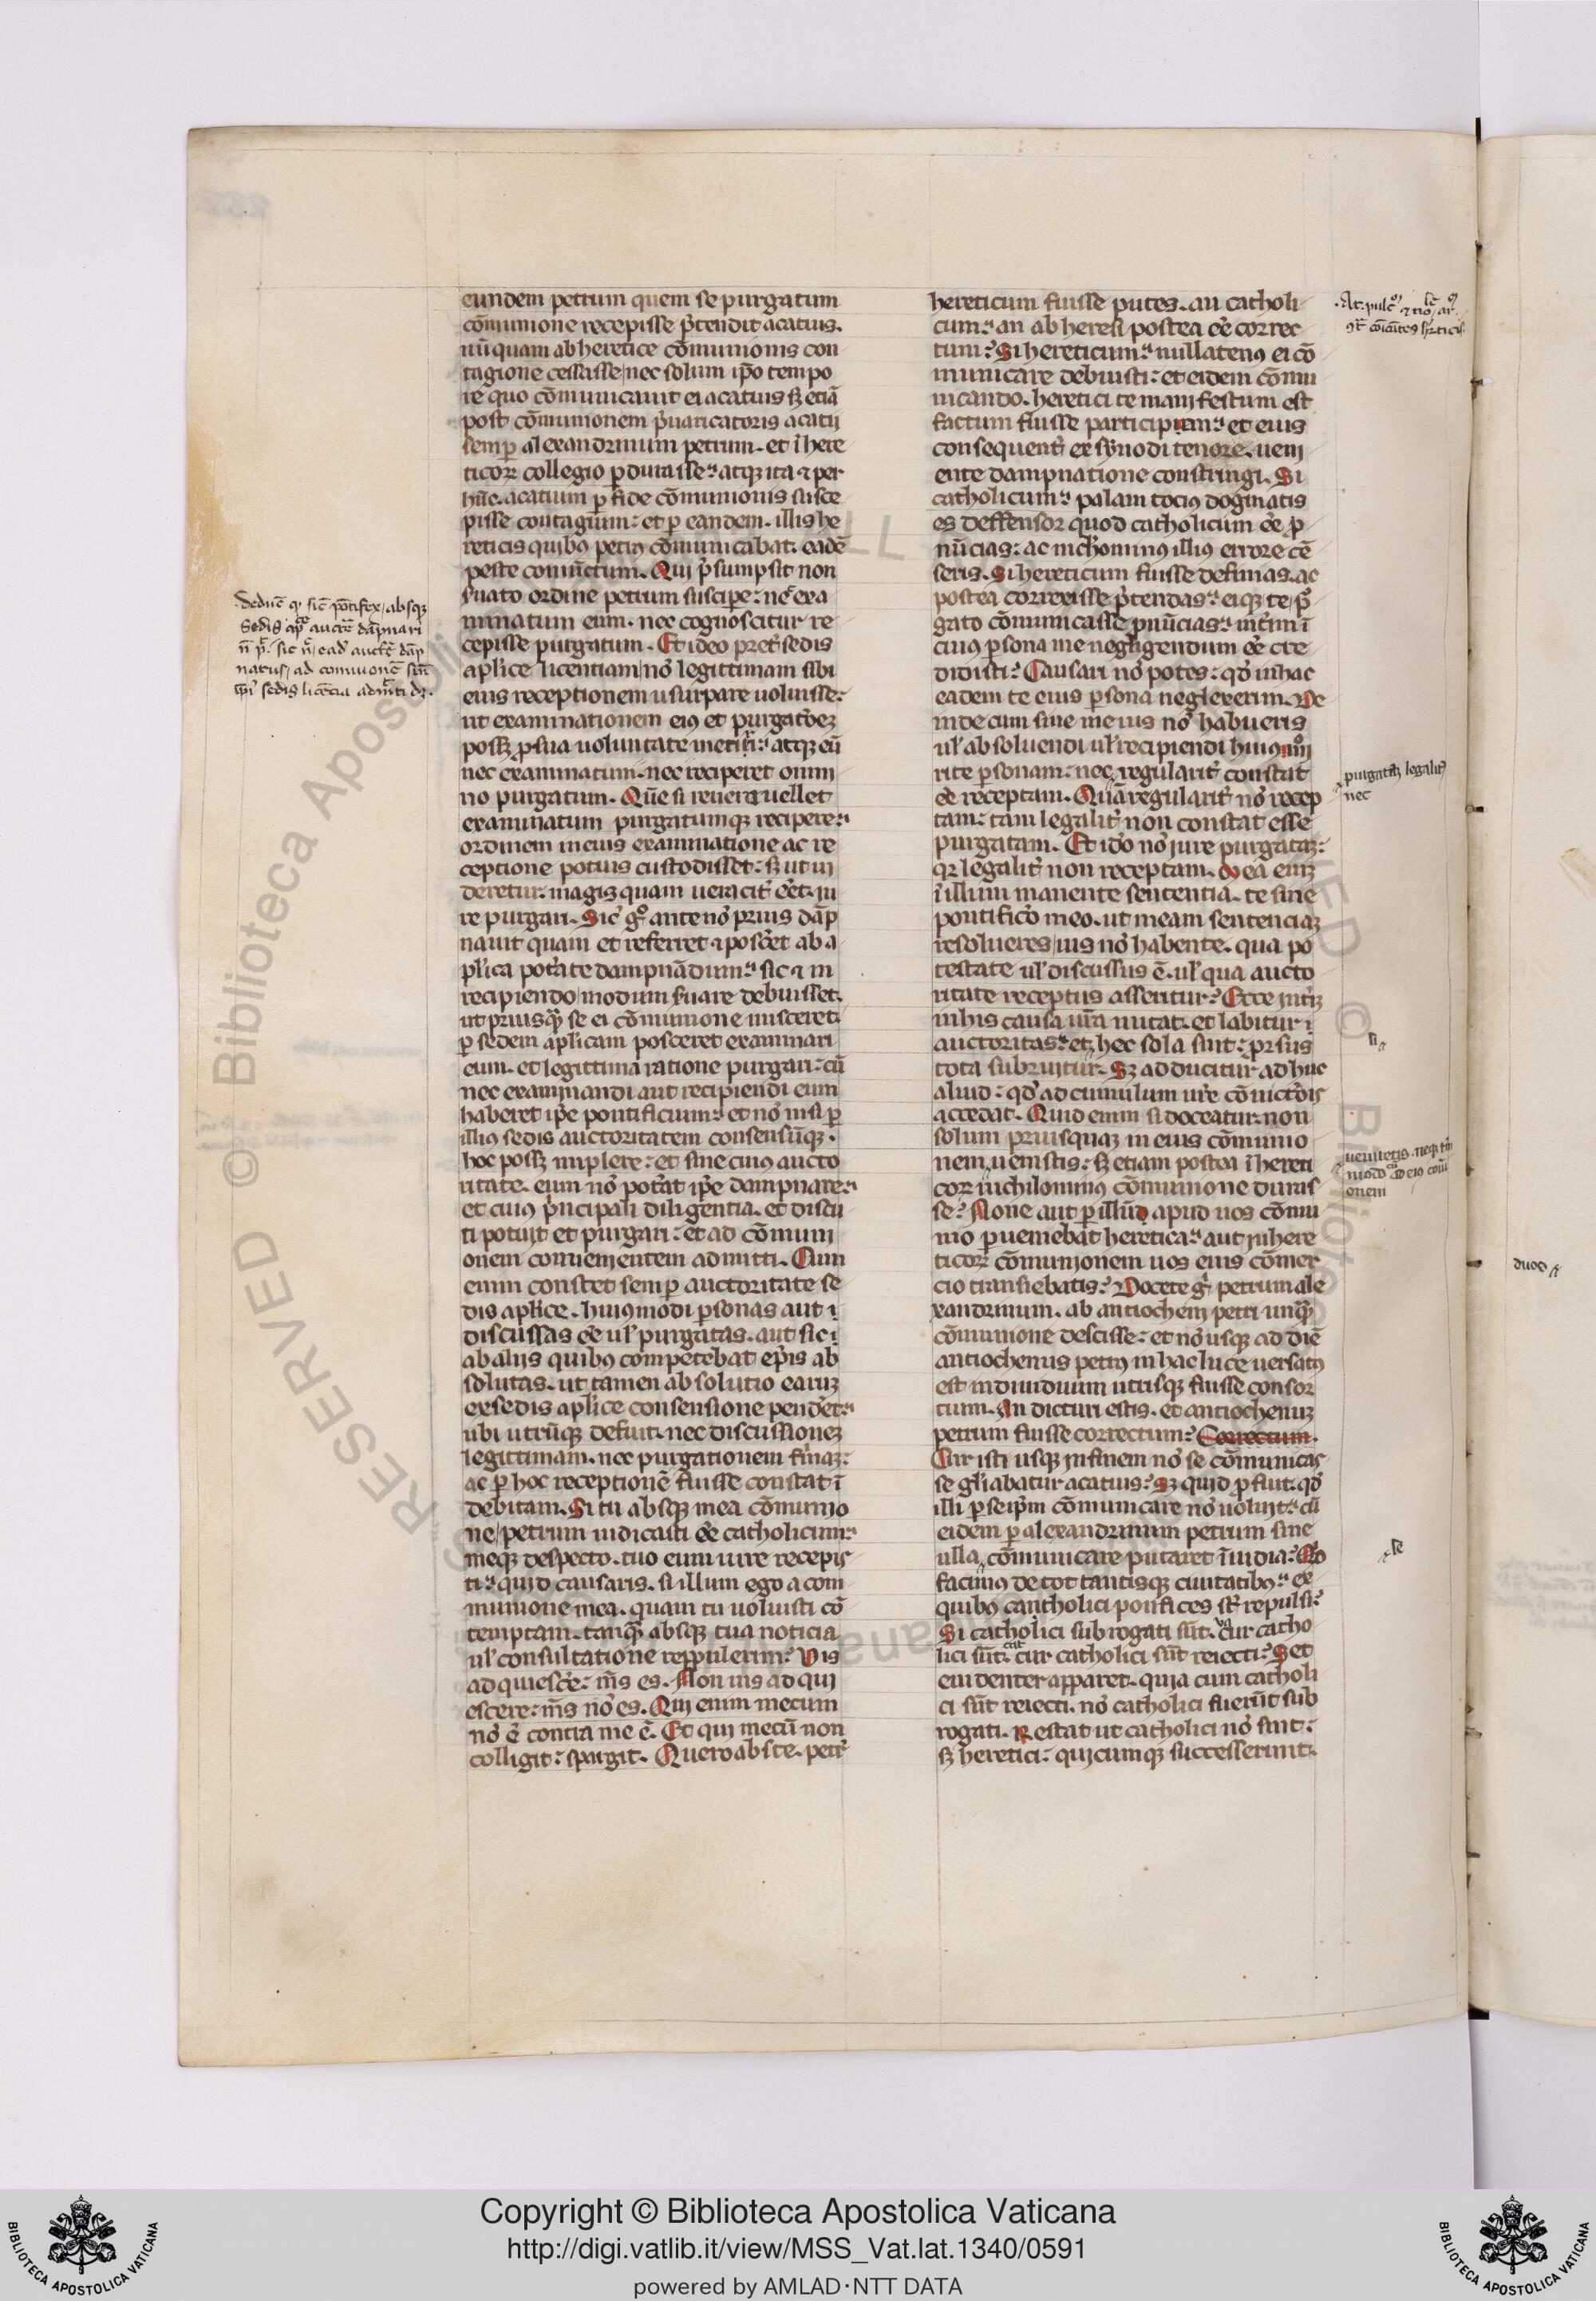 eundem petrum quem se purgatum
cōmunione recepisse p̄tendit acatius.
nūquam ab heretice cōmunionis con
tagione cessasse/nec solum ip̄o tempo
re quo cōmunicauit ei acatius sꝫ etiā
post cōmunionem p̄uaricatoris acatij
semꝑ alexandrinum petrum. et ī here
ticoꝝ collegio ꝑdurasse: atqꝫ ita ⁊ per
hūc. acatium ꝑfide cōmunionis susce
pisse contagium: et ꝑ eandem. illis he
reticis quibꝰ petrus cōmunicabat. eadē
peste coniūctum. Qui p̄sumpsit non
s̓uato ordine petrum suscipe: nec̄ exa
minatum eum. nec cognoscitur re
cepisse purgatum. Et ideo pret̓ sedis
apl̓ice licentiam/nō legittimam sibi
eius receptionem usurpare uoluisse:
ut examinationem eiꝰ et purgat̓oeꝫ
possꝫ ꝓ sua uoluntate metiri: atqꝫ eū
nec examinatum. nec reciperet omni
no purgatum. Quē si reuera uellet
examinatum purgatumqꝫ recipere:
ordinem in eius examinatione ac re
ceptione potius custodisset: sꝫ ut ui
deretur. magis quam ueracit̓ eēt. iu
re purgari. Sic̓ gͦ. ante nō prius dāp
nauit quam et referret ⁊ posc̓et ab a
pl̓ica pot̓ate dampnādum: sic ⁊ in
recipiendo/modum s̓uare debuisset.
ut priusq̄ se ei cōmunione misceret.
ꝑ sedem apl̓icam posceret examinari
eum. et legittima ratione purgari: cū
nec examinandi aut recipiendi eum
haberet ip̄e pontificium: et nō nisi ꝑ
illiꝰ sedis auctoritatem consensūqꝫ.
hoc possꝫ implere: et sine cuiꝰ aucto
ritate. eum nō pot̓at ip̄e dampnare:
et cuiꝰ p̓ncipali diligentia. et discu
ti potuit et purgari: et ad cōmuni
onem conuenientem admitti. Cum
enim constet semꝑ auctoritate se
dis apl̓ice. huiꝰmodi ꝑsonas aut i
discussas eē ul̓ purgatas. aut sic i
ab alijs quibꝰ competebat ep̄is ab
solutas. ut tamen absolutio earuꝫ
ex sedis apl̓ice consensione pend̓et:
ubi utrūqꝫ defuit. nec discussioneꝫ
legittimam. nec purgationem firmaꝫ:
ac ꝑ hoc receptionē fuisse constat ī
debitam. Si tu absqꝫ mea cōmunio
ne/petrum iudicasti eē catholicum:
meqꝫ despecto. tuo eum iure recepis
ti: quid causaris. si illum ego a com
munione mea. quam tu uoluisti cō
temptam. tanq̄ absqꝫ tua noticia
ul̓ consultatione reppulerim? Vis
adquiesc̓e: m̄s es. Non uis adqui
escere: m̄s nō es. Qui enim mecum
nō ē contra me ē. Et qui mecū non
colligit: spargit. Quero abs te. petr̄
hereticum fuisse putes. an catholi
cum: an ab heresi postea eē correc
tum? Si hereticum: nullatenꝰ ei cō
municare debuisti: et eidem cōmu
nicando. heretici te manifestum est
factum fuisse participem: et eius
consequent̓ ex synodi tenore. ueni
ente dampnatione constringi. Si
catholicum: palam tociꝰ dogmatis
es deffensor quod catholicum eē ꝓ
nūcias: ac nichominꝰ illiꝰ errore cē
seris. Si hereticum fuisse definias. ac
postea correxisse p̄tendas: eiqꝫ te /
gato cōmunicasse pnūcias: int̓im ī
cuiꝰ ꝑsona me negligendum eē cre
didisti? Causari nō potes: qd̓ in hac
eadem te eius ꝑsona neglexerim. De
inde cum sine me ius nō habueris
ul̓ absoluendi ul̓ recipiendi huiꝰmͦi
rite ꝑsonam: nec regularit̓ constat
eē receptam. Quā regularit̓ nō recep
tam: tam legalit̓ non constat esse
purgatam. Et id̓o nō iure purgataꝫ:
qꝛ legalit̓ non receptam. Ex ea eniꝫ
ī illum manente sententia. te sine
pontific̓o meo. ut meam sentenciaꝫ
resolueres/ius nō habente. qua po
testate ul̓ discussus ē. ul̓ qua aucto
ritate receptus asseritur? Ecce int̓iꝫ
in his causa ur̄a nutat. et labitur i
auctoritas: et hec sola sint: prorsus
tota subruitur. Sꝫ adducitur adhuc
aliud: qd̓ ad cumulum ur̄e cōuict̓ois
accedat. Quid enim si doceatur. non
solum priusquaꝫ in eius cōmunio
nem uenistis: sꝫ etiam postea ī hereti
coꝝ nichilominꝰ cōmunione duras
se? None aut ꝑ illud apud uos cōmu
nio ꝑueniebat heretica: aut in here
ticoꝝ cōmunionem uos eius cōmer
cio transiebatis? Docete g̓ petrum ale
xandrinum. ab antiocheni petri unq̄
cōmunione descisse: et nō usqꝫ ad diē
antiochenus petrꝰ in hac luce uersatꝰ
est indiuiduum utrisqꝫ fuisse consor
tium. An dicturi estis. et antiochenuꝫ
petrum fuisse correctum? Correctum.
Cur isti usqꝫ in finem nō se cōmunicas
se gl̓iabatur acatius? Sꝫ quid ꝓfuit. qd̓
illi ꝑ seip̄m cōmunicare nō uoluit: cū
eidem ꝑ alexandrinum petrum sine
ulla cōmunicare putaret īuidia? Qd̓
facimus de tot tantisqꝫ ciuitatibꝰ: ex
quibꝰ cantholici ponfices st̄ repulsi?
Si catholici subrogati sūt. cur catho
lici sūt. cur catholici sūt reiecti? Set
euidenter apparet. quia cum catholi
ci sūt reiecti. nō catholici fuerūt sub
rogati. Restat ut catholici nō sint:
sꝫ heretici: quicumqꝫ successerunt.
deduc̄ qͥ sic̄ pōtifex/absqꝫ
sedis ap̄ auctē dāpnari
n̄ p̄. sic n̄/ead̓ auctē dāp
natus/ad comuionē
sedis licēcia admitti dꝫ.
purgatā legalit̓
nec
si
duod
se
Copyright © Biblioteca Apostolica Vaticana
http://digi.vatlib.it/view/MSS_Vat.lat.1340/0591
powered by AMLAD·NTT DATA
BIBLIOTECA APOSTOLICA VATICANA
BIBLIOTECA APOSTOLICA VATICANA